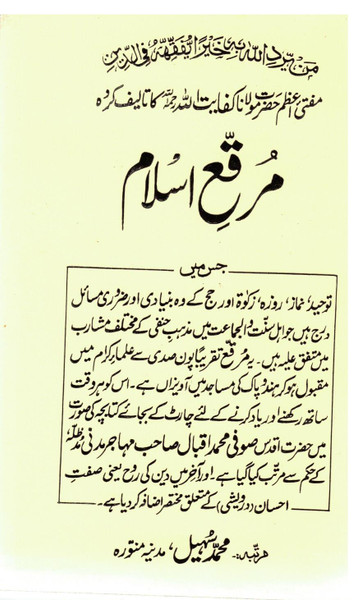 من یرد اللہ بہ خیرا یفقھہ فی الدین
مفتی اعظم حضرت مولانا کفایت اللہ رحمہ اللہ کا تالیف کردہ
مُرقّعِ اسلام
جس میں
توحید، نماز، روزہ، زکوٰۃ اور حج کے وہ بنیادی اور ضروری مسائل
درج ہیں جو اہل سنت والجماعت میں مذہب حنفی کے مختلف مشارب
میں متفق علیہ ہیں۔ یہ مرقع تقریباً پون صدی سے علماء کرام میں
مقبول ہو کر ہند و پاک کی مساجد میں آویزاں ہے۔ اس کو ہر وقت
ساتھ رکھنے اور یاد کرنے کے لئے چارٹ کے بجائے کتابچہ کی صورت
میں حضرت اقدس صوفی محمد اقبال صاحب مہاجر مدنی مدظلہ
کے حکم سے مرتب کیا گیا ہے! اور آخر میں دین کی روح یعنی صفتِ
احسان (درویشی) کے متعلق مختصر اضافہ کر دیا ہے۔
مرتبہ:۔ محمد سہیل، مدنیہ منورہ